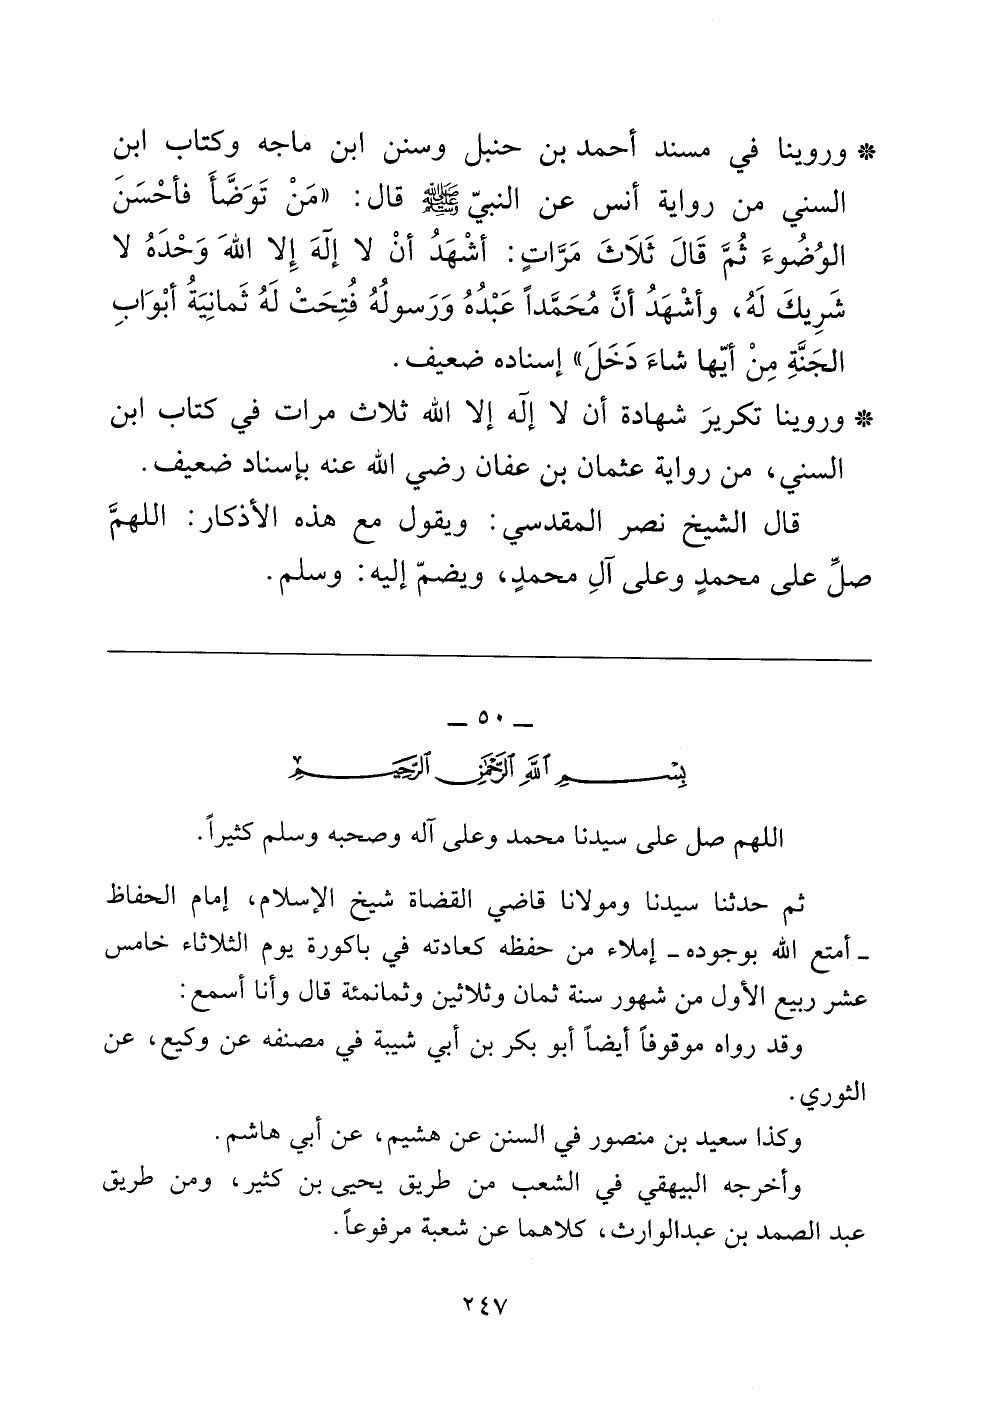 * وروينا في مسند أحمد بن حنبل وسنن ابن ماجه وكتاب ابن
السني من رواية أنس عن النبيّ ﷺ قال: «مَنْ تَوَضَّأَ فأحْسَنَ
الوُضُوءَ ثُمَّ قَالَ ثَلَاثَ مَرَّاتٍ: أشْهَدُ أنْ لا إلَهَ إِلا اللهَ وَحْدَهُ لا
شَرِيكَ لَهُ، وأشْهَدُ أنَّ مُحَمَّداً عَبْدُهُ وَرَسولُهُ فُتِحَتْ لَهُ ثَمانِيَةُ أبْوَابِ
الجَنَّةِ مِنْ أيّها شاءَ دَخَلَ» إسناده ضعيف.
* وروينا تكريرَ شهادة أن لا إلَه إلا الله ثلاث مرات في كتاب ابن
السني، من رواية عثمان بن عفان رضي الله عنه بإسناد ضعيف.
قال الشيخ نصر المقدسي: ويقول مع هذه الأذكار: اللهمَّ
صلِّ على محمدٍ وعلى آلِ محمدٍ، ويضمّ إليه: وسلم.
ـ ٥٠ ـ
بِسْمِ اللَّهِ الرَّحْمَٰنِ الرَّحِيمِ
اللهم صل على سيدنا محمد وعلى آله وصحبه وسلم كثيراً.
ثم حدثنا سيدنا ومولانا قاضي القضاة شيخ الإسلام، إمام الحفاظ
ـ أمتع الله بوجوده ـ إملاء من حفظه كعادته في باكورة يوم الثلاثاء خامس
عشر ربيع الأول من شهور سنة ثمان وثلاثين وثمانمئة قال وأنا أسمع:
وقد رواه موقوفاً أيضاً أبو بكر بن أبي شيبة في مصنفه عن وكيع، عن
الثوري.
وكذا سعيد بن منصور في السنن عن هشيم، عن أبي هاشم.
وأخرجه البيهقي في الشعب من طريق يحيى بن كثير، ومن طريق
عبد الصمد بن عبدالوارث، كلاهما عن شعبة مرفوعاً.
٢٤٧